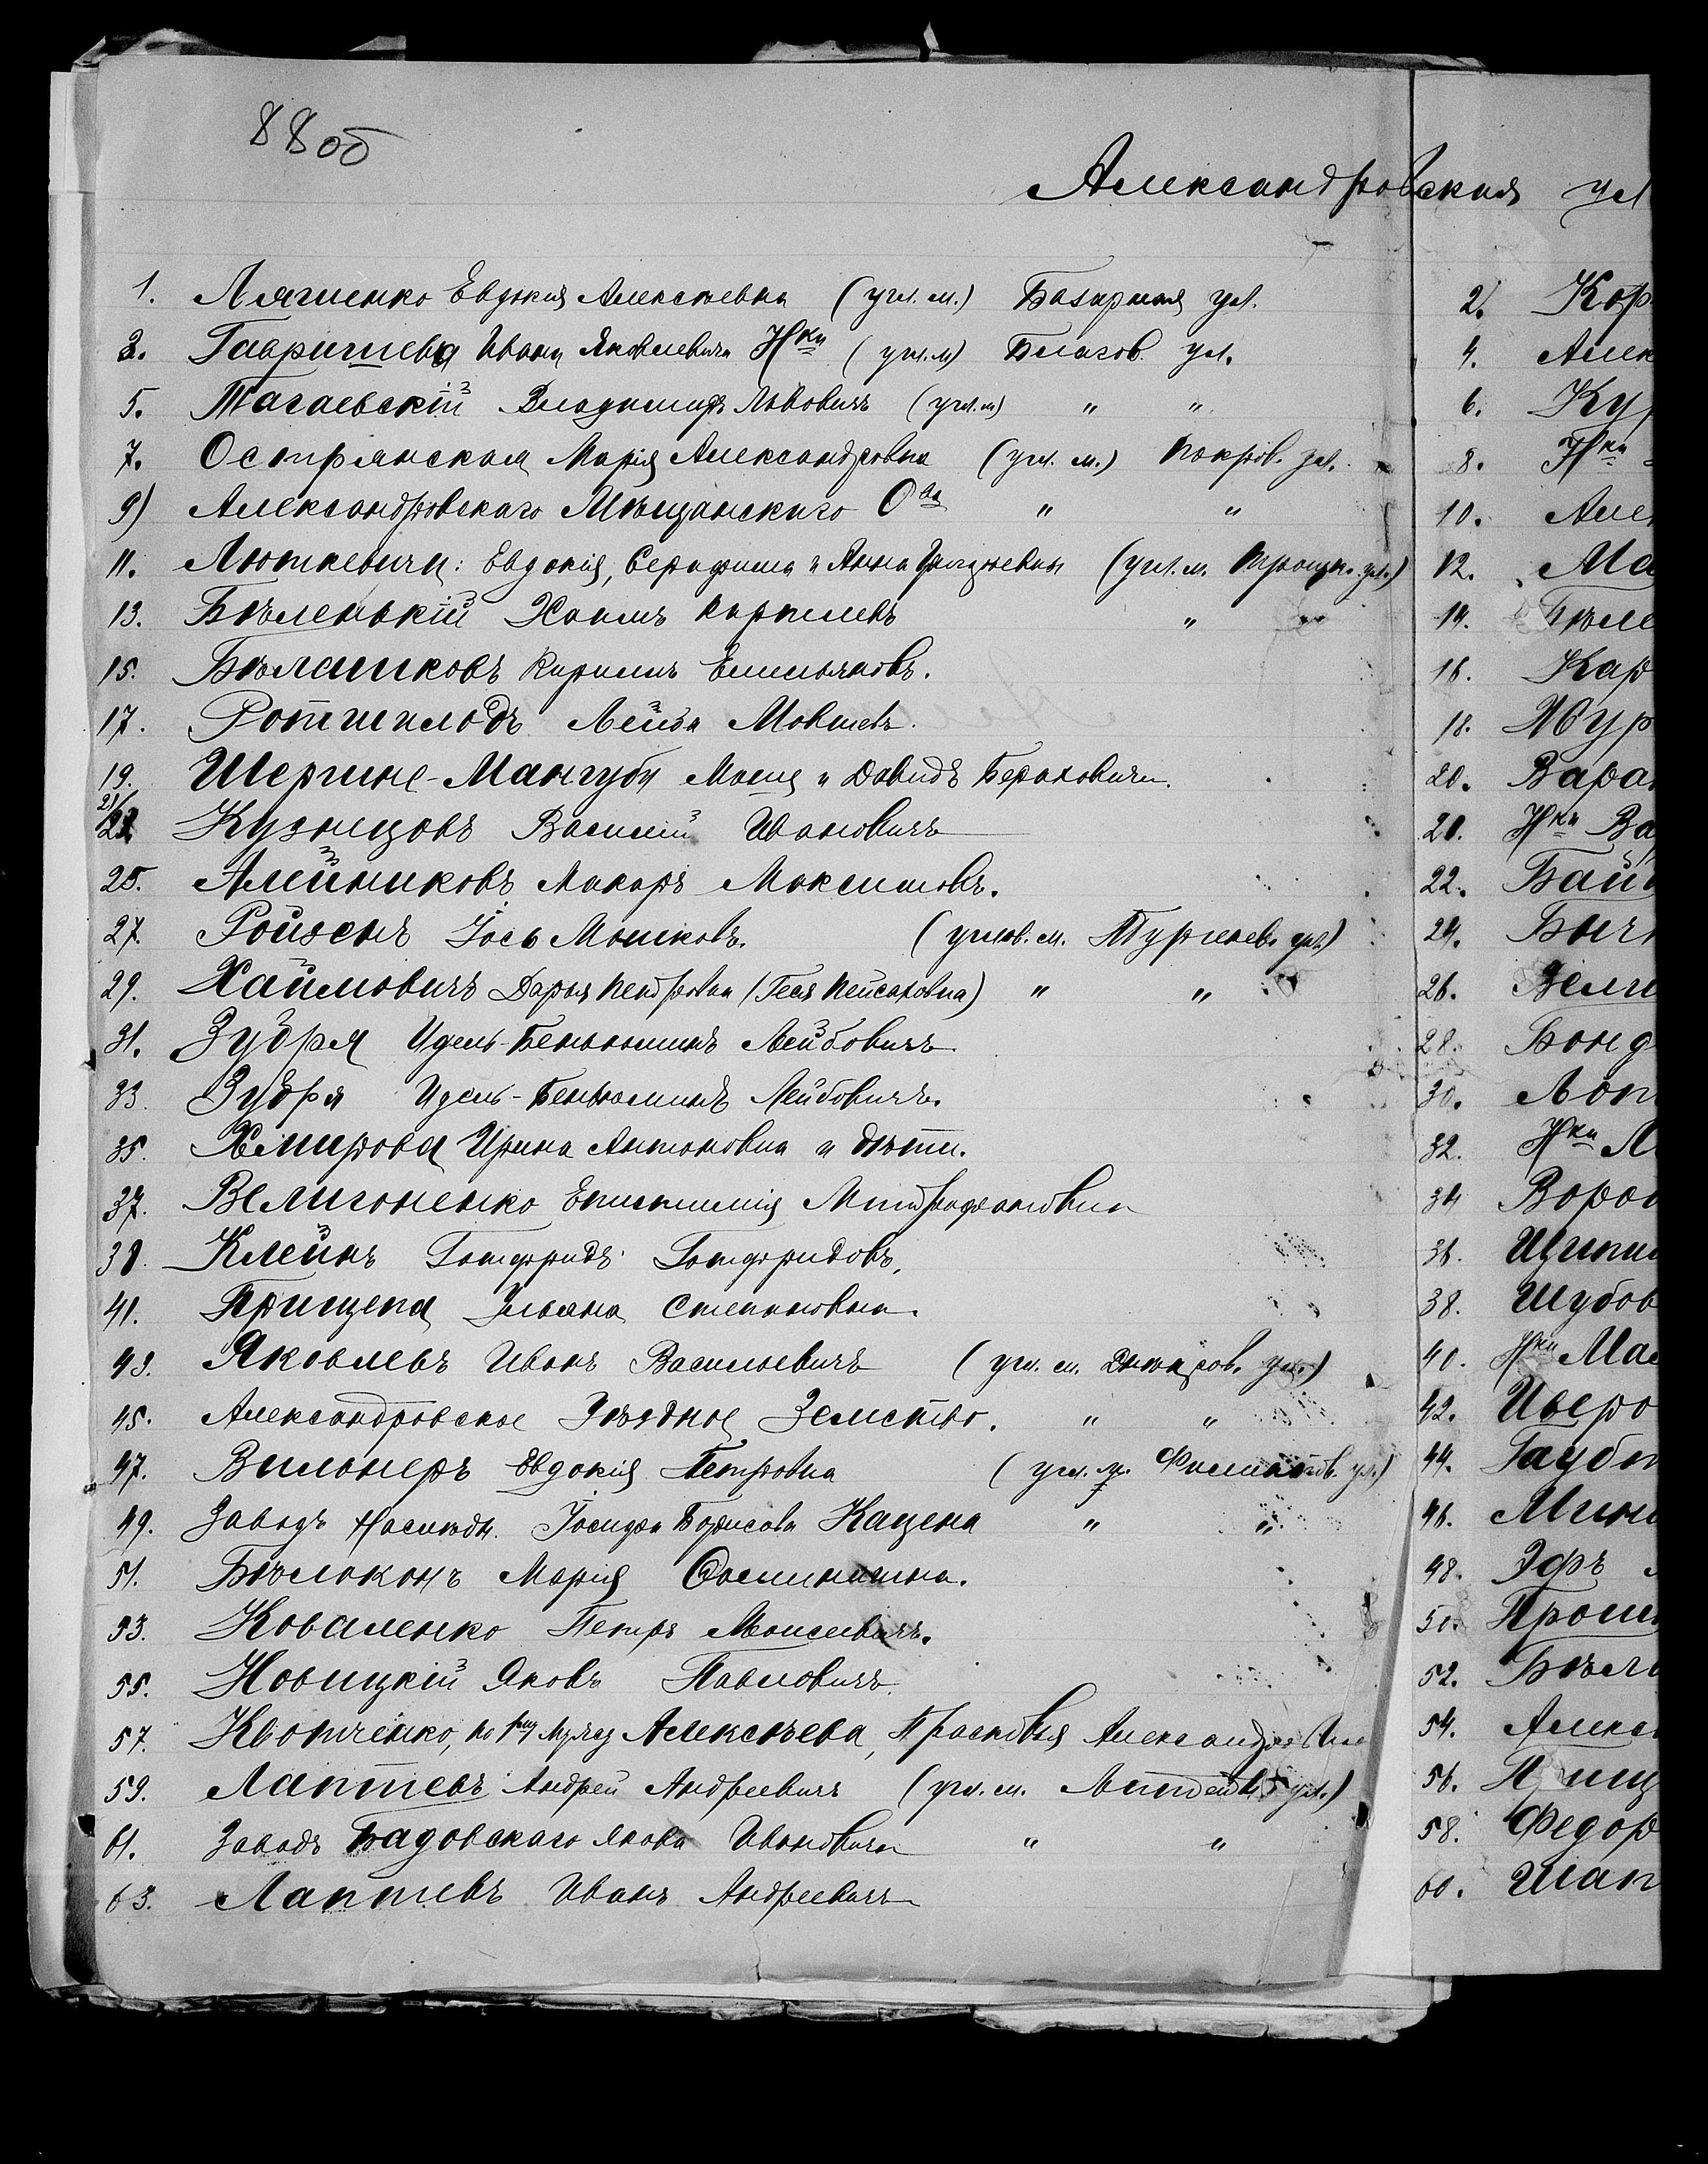 88об
Александровская ул
1. Лягиенко Евдокия Алексѣевна (угл. м.) Базарная ул.
3. Гавришева Ивана Яковлевича Нки (угл. м) Благов. ул.
5. Тагаевскій Владиміръ Львовичъ (угл. м) " "
7. Острянская Марія Александровна (угл. м.) Покров. ул.
9) Александровскаго Мѣщанскаго Ова " "
11. Люткевичи: Евдокія, Серафима и Анна (угл. м. Троицк. ул.)
13. Бѣленькій Хаимъ Карпилевъ " "
15. Бѣлашковъ Кириллъ Емельяновъ.
17. Ротшильдъ Лейба Мовшевъ.
19. Шергине-Мангуби Моисей и Давидъ Бераховичи.
21/23 Кузнецовъ Василій Ивановичъ
25. Алейниковъ Макаръ Максимовъ.
27. Ройзенъ Іось Мошковъ. (углов. м. Тургенев. ул.)
29. Хаймовичъ Дарья Петровна (Геся Пейсаховна) " "
31. Зубря Идель-Беньюминъ Лейбовичъ
33. Зубря Идель-Беньюминъ Лейбовичъ.
35. Хмирова Ирина Антоновна и дѣти.
37. Велигоненко Епистимія Митрофановна
38. Клейнъ Готфридъ Готфридовъ,
41. Прищепа Ульяна Степановна.
43. Яковлевъ Иванъ Васильевичъ (уг. м. ул.)
45. Александровское Уѣздное Земство. " "
47. Вильнеръ Евдокія Петровна (угл. м. ул.)
49. Заводъ Наслѣдн. Іосифа Борисова Кацена " "
51. Бѣлоконь Марія
53. Коваленко Петръ Моисеевичъ.
55. Новицкій Яковъ Павловичъ
57. Квотченко, по 1му мужу Алексѣева, Прасковья Александровна
59. Лаптевъ Андрей Андреевичъ (угл. м. ул.)
61. Заводъ Бадовскаго Якова Ивановича " "
63. Лаптевъ Иванъ Андреевичъ
2. Кор
4. Алек
6. Кур
8. Нки
10. Алек
12. Ма
14. Бѣле
16. Кар
18. Явур
20. Вара
20. Нки Ва
22. Бай
24. Быч
26. Вели
28. Бонд
30. Лоп
32. Нки Л
34 Воро
36. Щипи
38. Шубов
40. Нки Мас
42. Цверо
44. Гауб
46. Мини
48. Эфъ
50. Прош
52. Бѣл
54. Алекс
56. П ищ
58. Федор
60. Шап